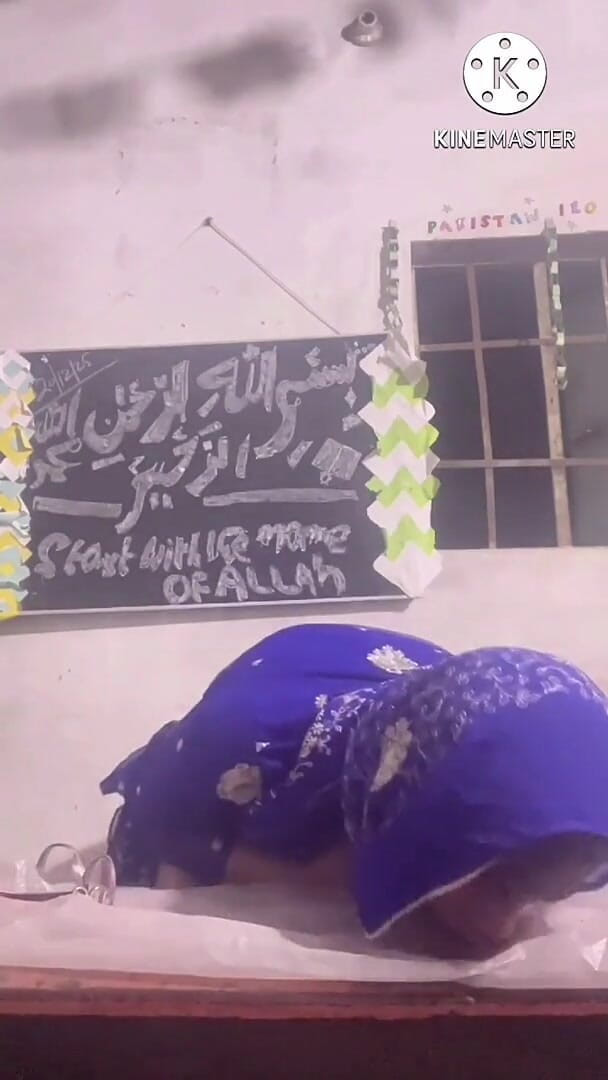 K
KINEMASTER
PAKISTAN
20/12/25
بِسْمِ اللّٰهِ الرَّحْمٰنِ
الرَّحِيْمِ
اللہ
محمد
Start with the name
OF ALLAH